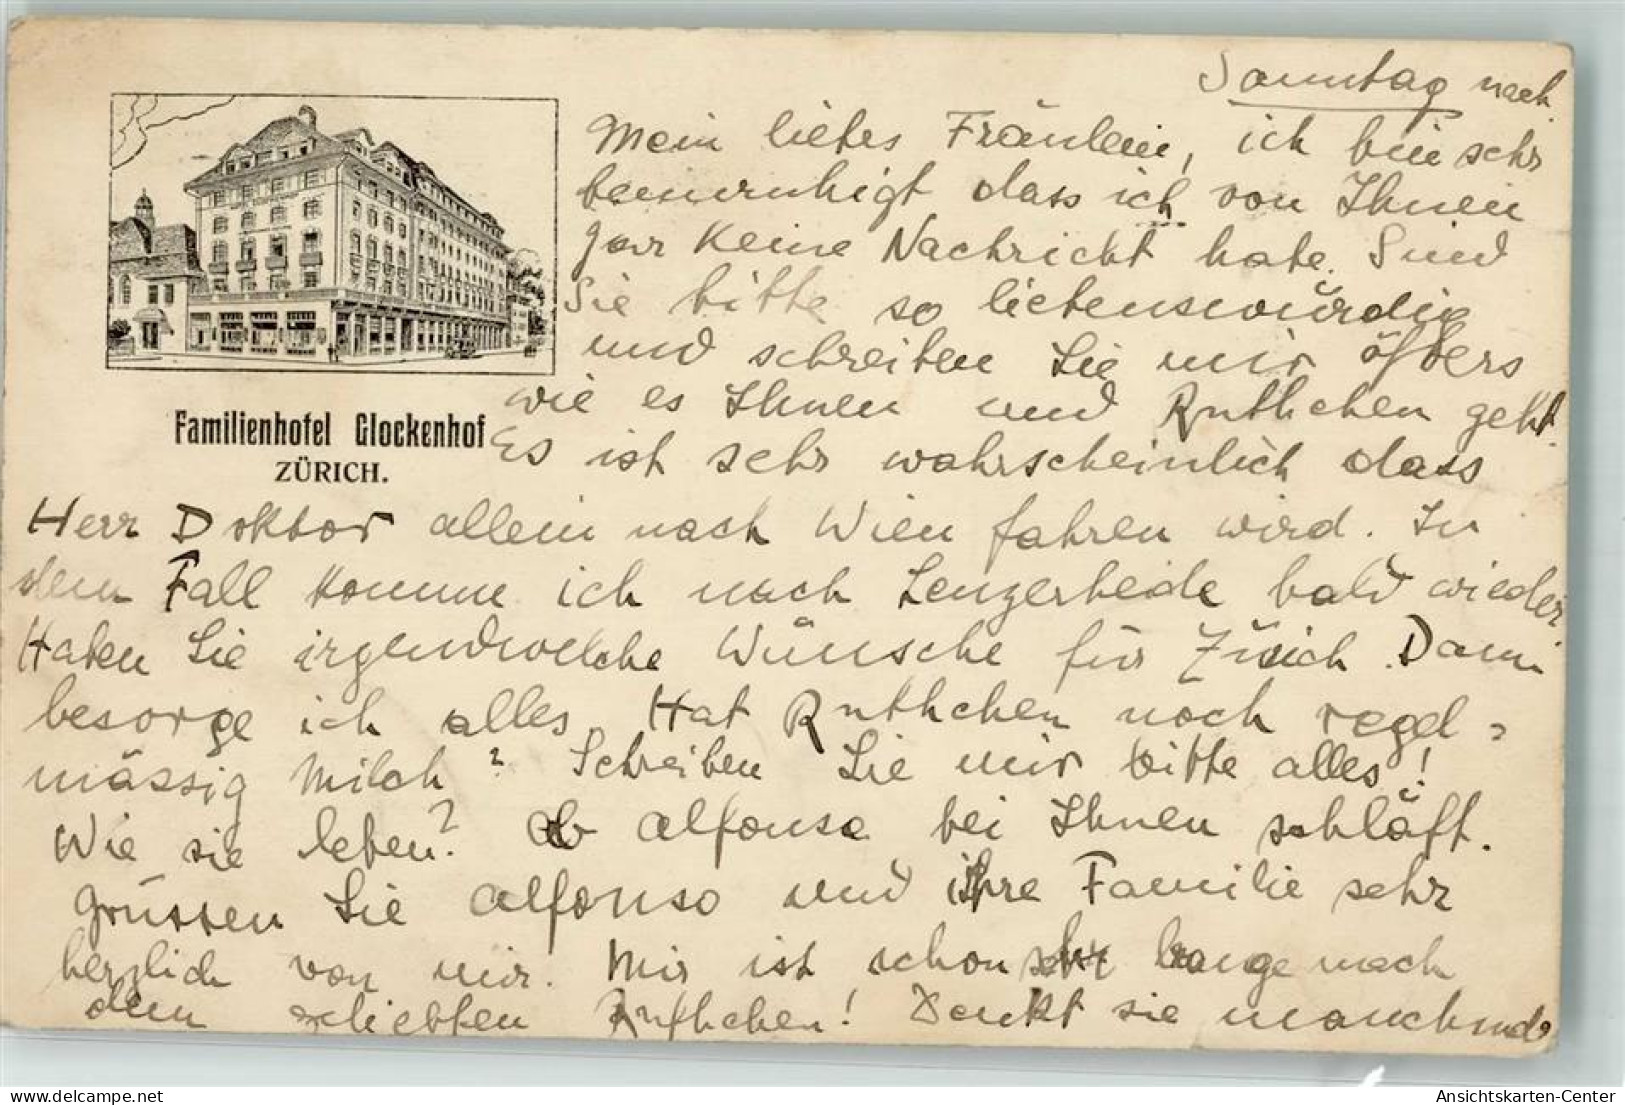 Sonntag nach
Mein liebes Fräulein, ich bin sehr
beunruhigt dass ich von Ihnen
gar keine Nachricht habe. Sind
Sie bitte so liebenswürdig
und schreiben Sie mir öfters
wie es Ihnen und Ruthchen geht.
Familienhotel Glockenhof
ZÜRICH.
Es ist sehr wahrscheinlich dass
Herr Doktor allein nach Wien fahren wird. In
dem Fall komme ich nach Lenzerheide bald wieder.
Haben Sie irgendwelche Wünsche für Zürich. Dann
besorge ich alles. Hat Ruthchen noch regel=
mässig Milch? Schreiben Sie mir bitte alles!
Wie sie leben? Ob Alfonso bei Ihnen schläft.
Grüssen Sie Alfonso und ihre Familie sehr
herzlich von mir. Mir ist schon sehr bange nach
dem geliebten Ruthchen! Denkt sie manchmal
delcampe.net
Ansichtskarten-Center